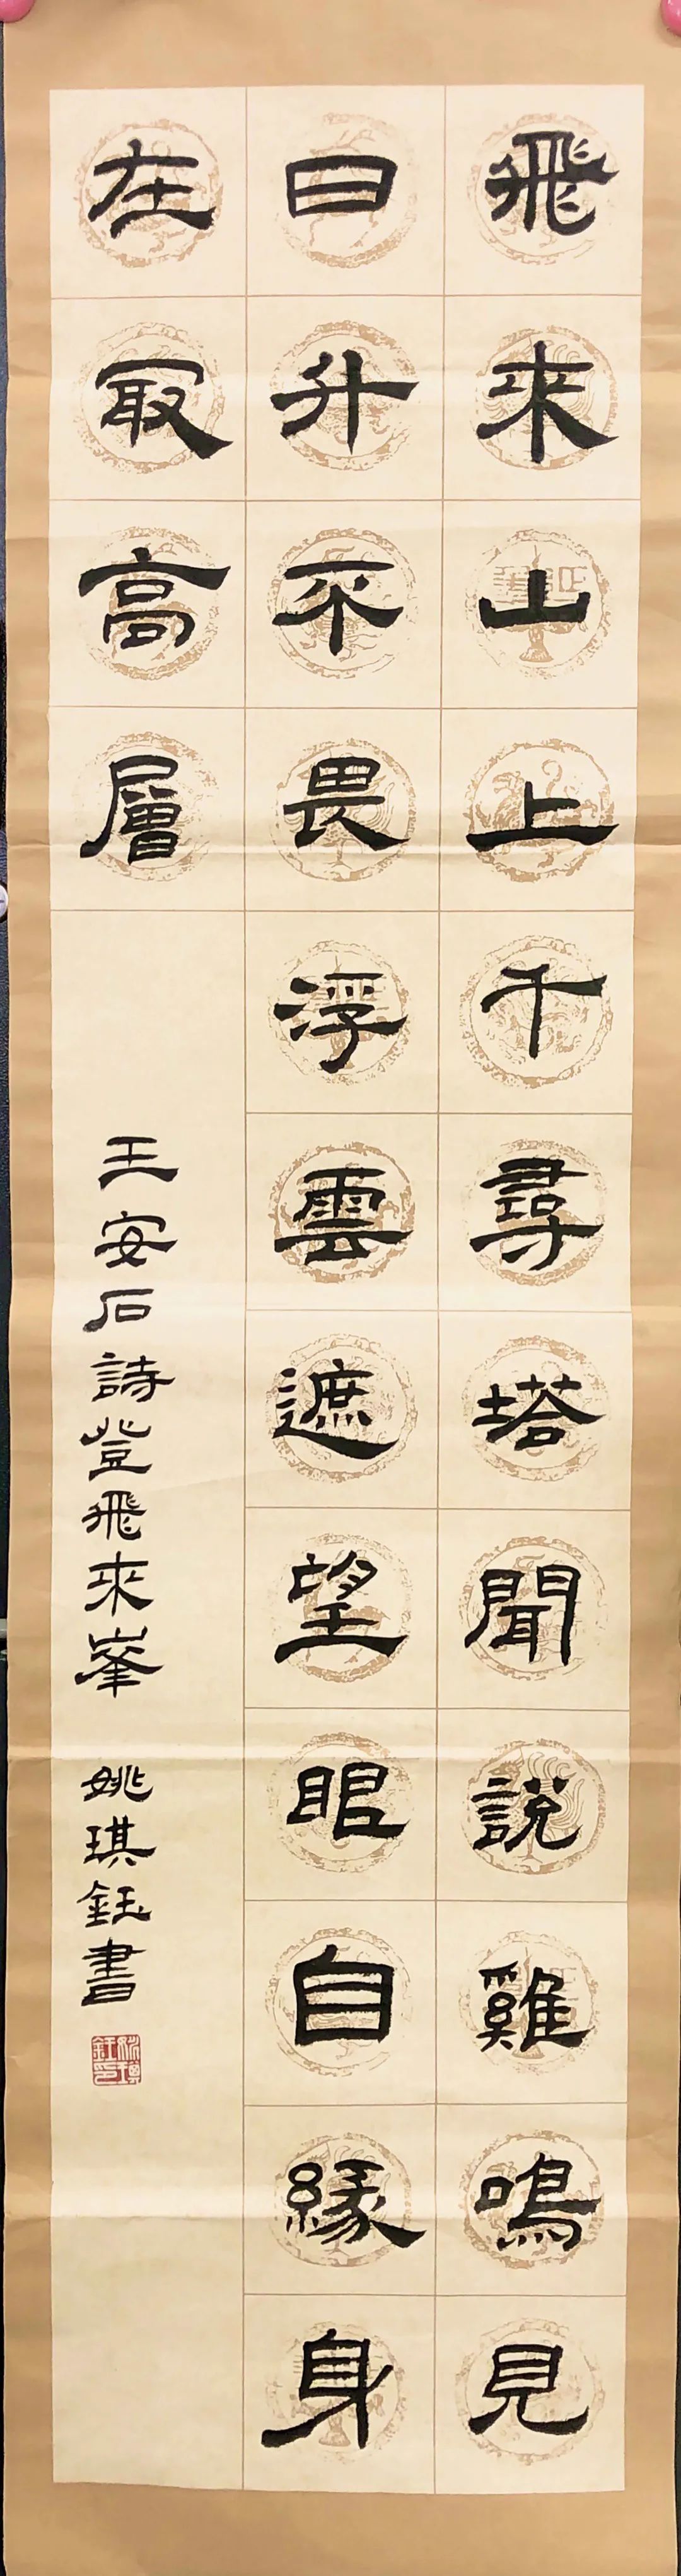 飛來山上千尋塔聞說雞鳴見
日升不畏浮雲遮望眼自緣身
在冣高層
王安石詩登飛來峯 姚琪鈺書